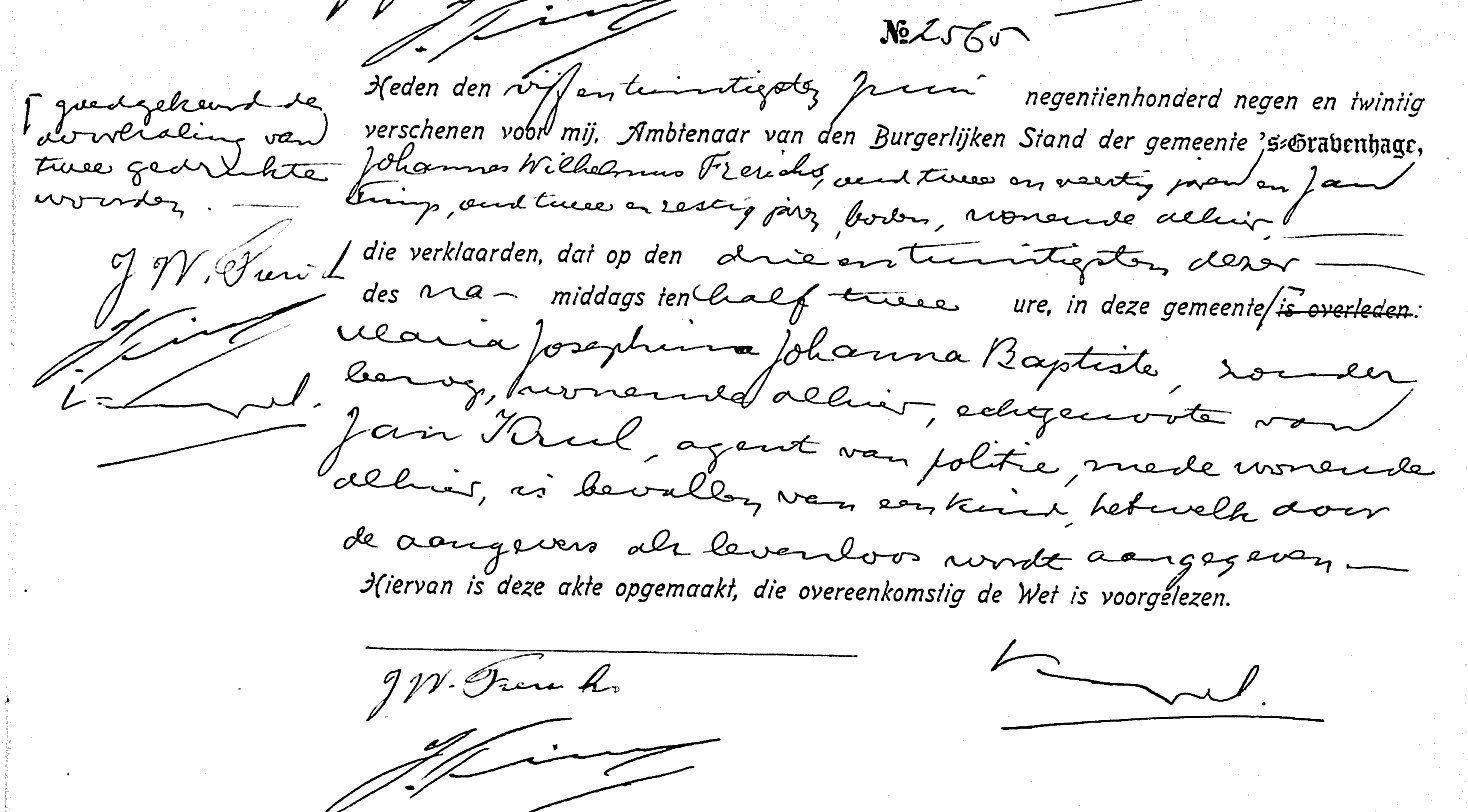 № 2565
Heden den vijfentwintigsten Juni negentienhonderd negen en twintig
verschenen voor mij, Ambtenaar van den Burgerlijken Stand der gemeente 's-Gravenhage,
Johannes Wilhelmus Frerichs, oud twee en veertig jaren en Jan
oud twee en zestig jaren, boden, wonende alhier,
die verklaarden, dat op den drieentwintigsten dezer
des na- middags ten half twee ure, in deze gemeente is overleden:
Maria Josephina Johanna Baptiste, zonder
beroep, wonende alhier, echtgenoote van
Jan Krul, agent van politie, mede wonende
alhier, is bevallen van een kind, hetwelk door
de aangevers als levenloos wordt aangegeven
Hiervan is deze akte opgemaakt, die overeenkomstig de Wet is voorgelezen.
goedgekeurd de
doorhaling van
twee gedrukte
woorden.
J W. Frerichs
J W. Frerichs